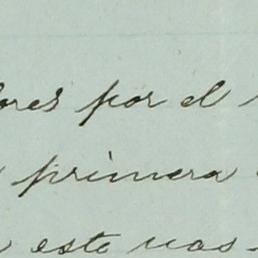 ores por el
primera
este vas-